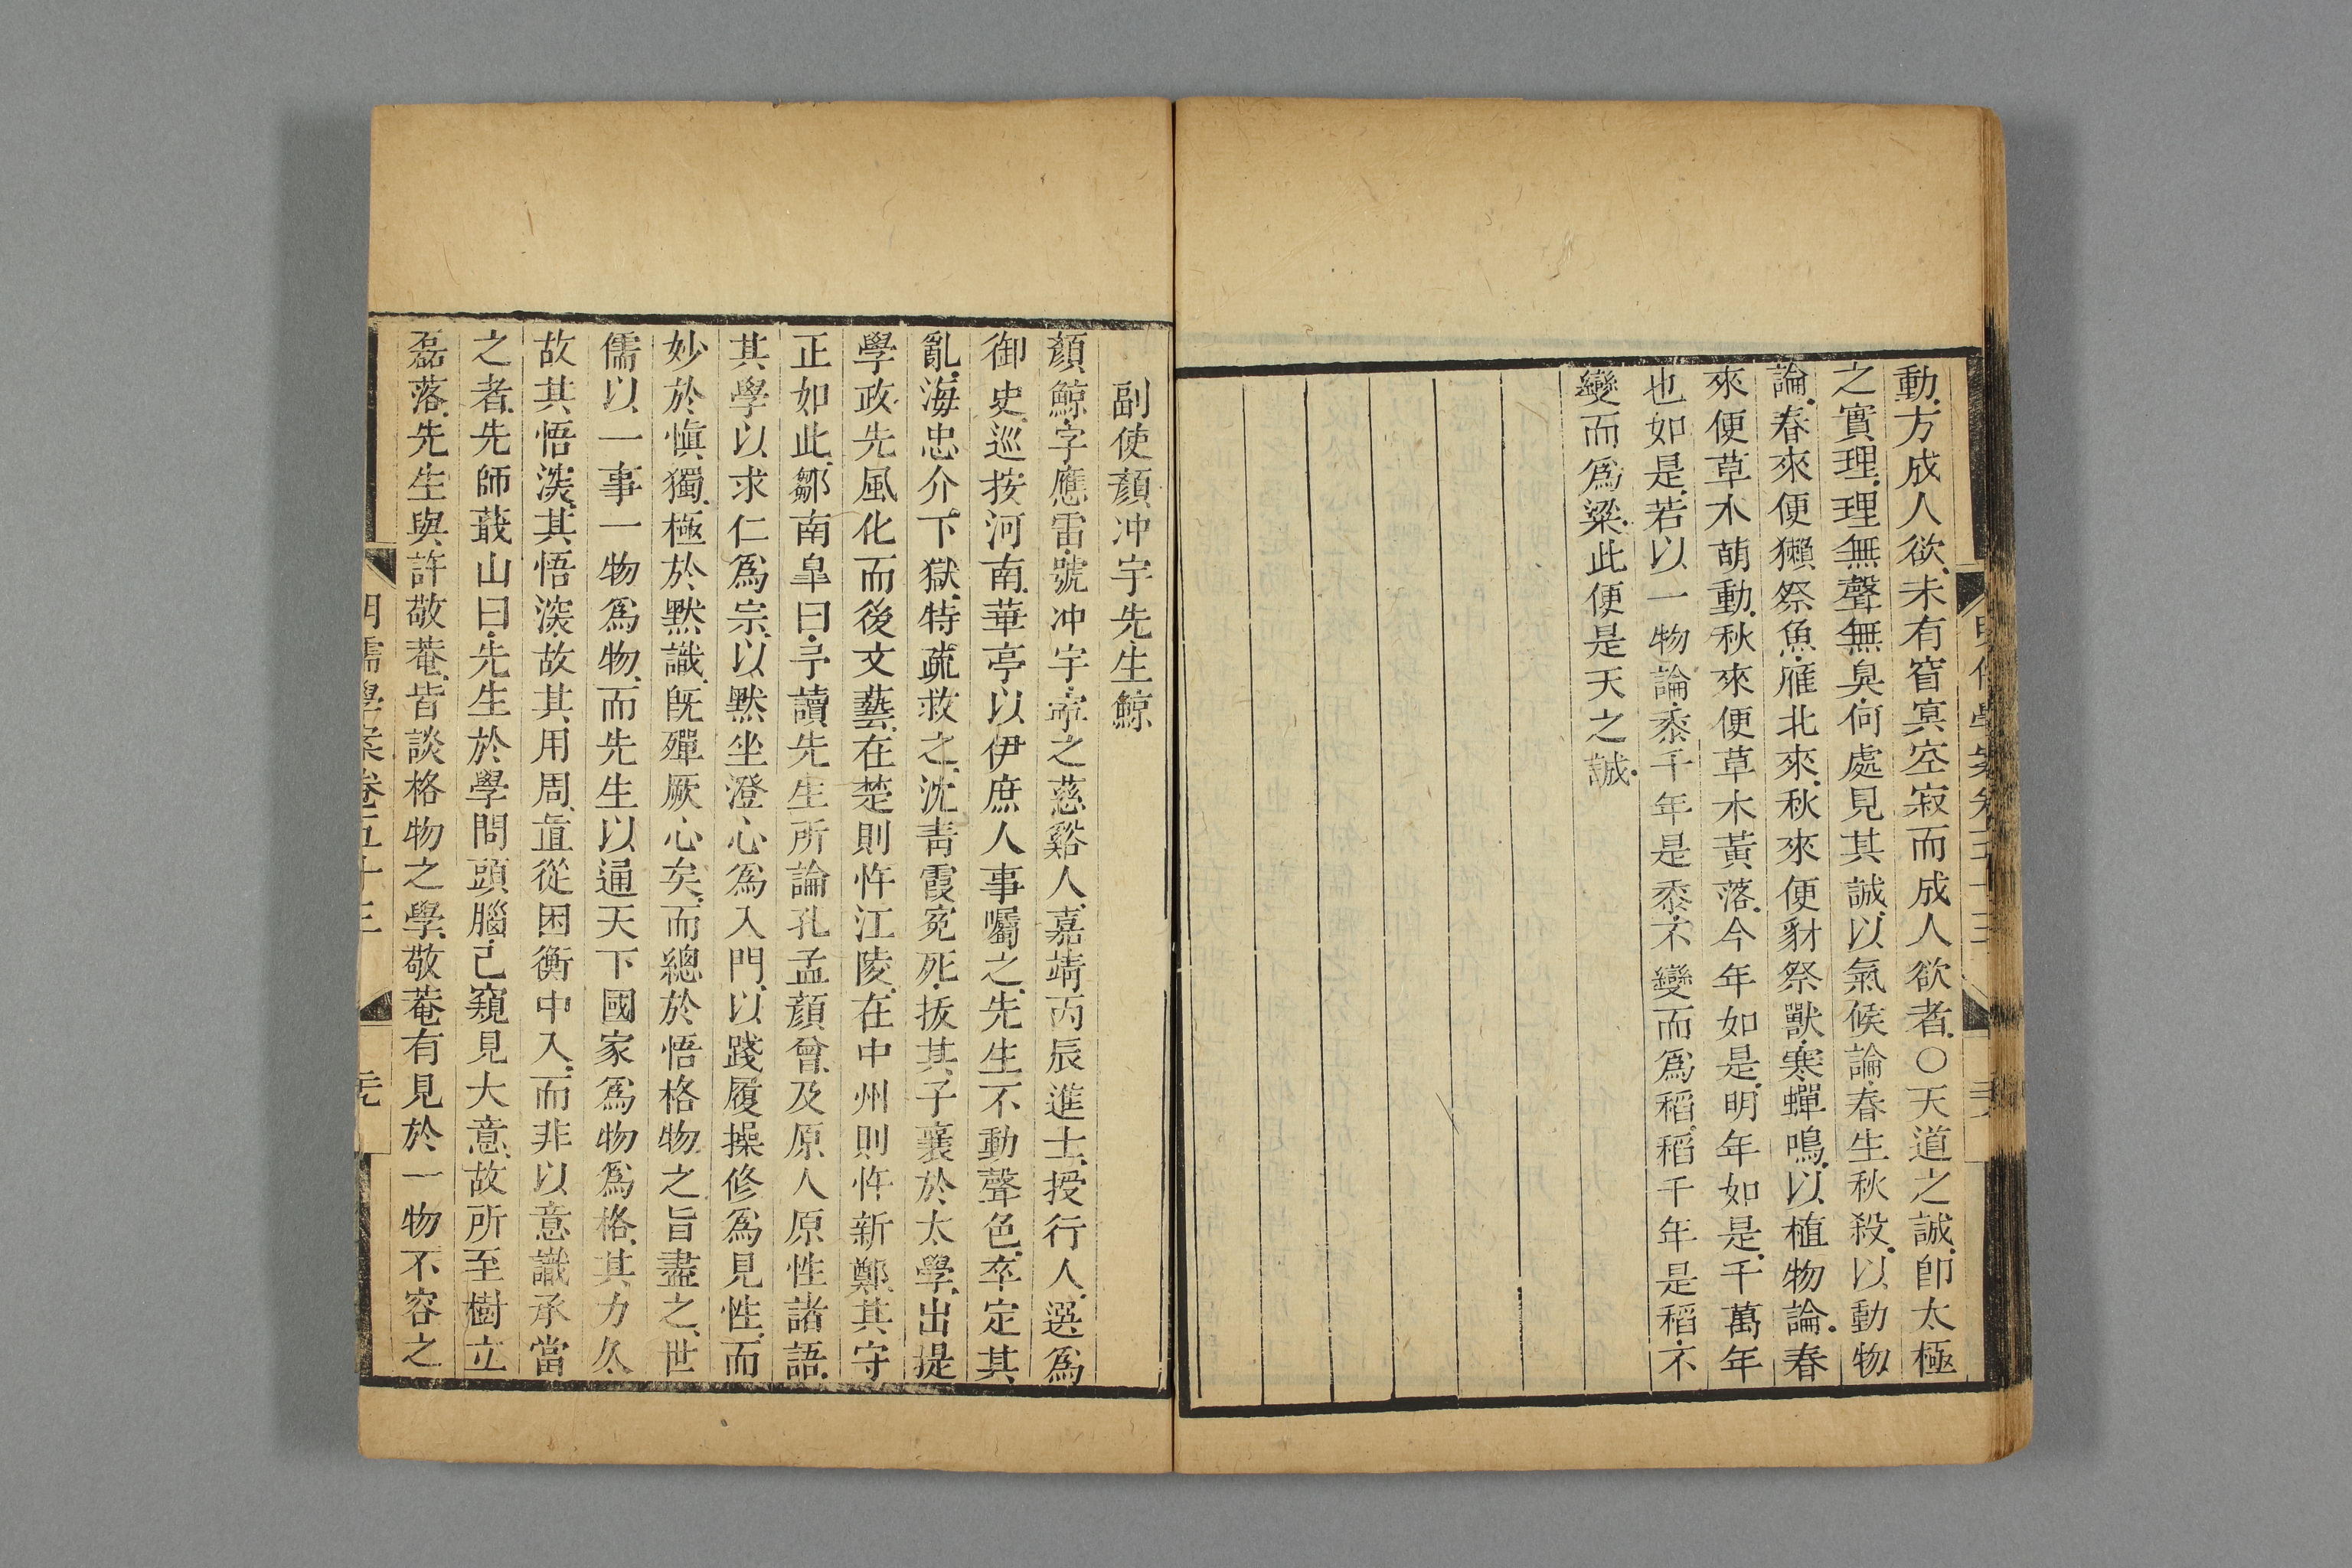 動方成人欲未有窅冥空寂而成人欲者○天道之誠卽太極
之實理理無聲無臭何處見其誠以氣候論春生秋殺以動物
論春來便獺祭魚雁北來秋來便豺祭獸寒蟬鳴以植物論春
來便草木萌動秋來便草木黃落今年如是明年如是千萬年
也如是若以一物論黍千年是黍不變而爲稻稻千年是稻不
變而爲粱此便是天之誠
副使顏冲宇先生鯨
顏鯨字應雷號冲宇寧之慈谿人嘉靖丙辰進士授行人選爲
御史巡按河南華亭以伊庶人事囑之先生不動聲色卒定其
亂海忠介下獄特疏救之沈靑霞寃死拔其子襄於太學出提
學政先風化而後文藝在楚則忤江陵在中州則忤新鄭其守
正如此鄒南臯曰予讀先生所論孔孟顏曾及原人原性諸語
其學以求仁爲宗以默坐澄心爲入門以踐履操修爲見性而
妙於愼獨極於默識旣殫厥心矣而總於悟格物之旨盡之世
儒以一事一物爲物而先生以通天下國家爲物爲格其力久
故其悟深其悟深故其用周直從困衡中入而非以意識承當
之者先師蕺山曰先生於學問頭腦已窺見大意故所至樹立
磊落先生與許敬菴皆談格物之學敬菴有見於一物不容之
明儒學案卷五十三